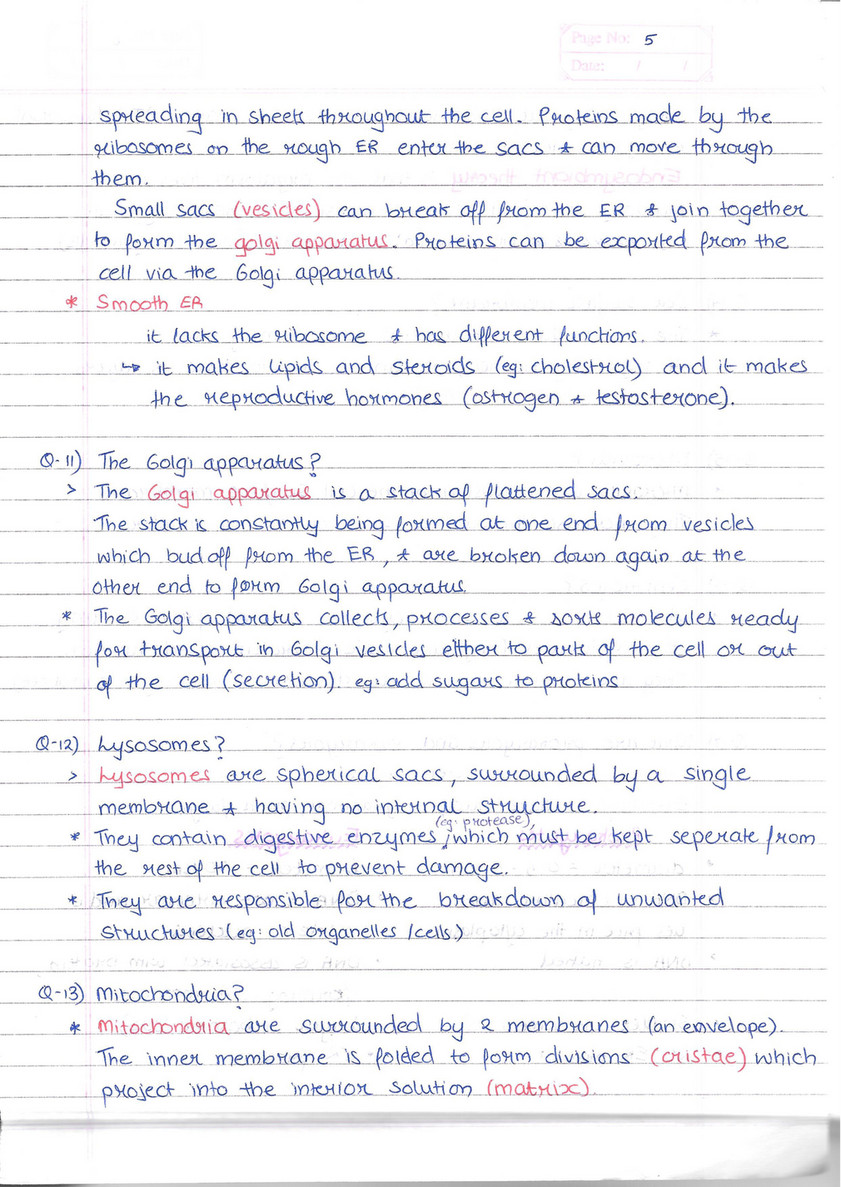 Page No: 5
Date: / /
spreading in sheets throughout the cell. Proteins made by the
ribosomes on the rough ER enter the sacs & can move through
them.
Small sacs (vesicles) can break off from the ER & join together
to form the golgi apparatus. Proteins can be exported from the
cell via the Golgi apparatus.
* Smooth ER
it lacks the ribosome & has different functions.
↳ it makes lipids and steroids (eg: cholestrol) and it makes
the reproductive hormones (ostrogen & testosterone).
Q-11) The Golgi apparatus?
> The Golgi apparatus is a stack of flattened sacs.
The stack is constantly being formed at one end from vesicles
which bud off from the ER, & are broken down again at the
other end to form Golgi apparatus.
* The Golgi apparatus collects, processes & sorts molecules ready
for transport in Golgi vesicles either to parts of the cell or out
of the cell (secretion). eg: add sugars to proteins
Q-12) Lysosomes?
> Lysosomes are spherical sacs, surrounded by a single
membrane & having no internal structure.
(eg: protease),
* They contain digestive enzymes, which must be kept seperate from
the rest of the cell to prevent damage.
* They are responsible for the breakdown of unwanted
structures (eg: old organelles/cells)
Q-13) Mitochondria?
* Mitochondria are surrounded by 2 membranes (an envelope).
The inner membrane is folded to form divisions (cristae) which
project into the interior solution (matrix).